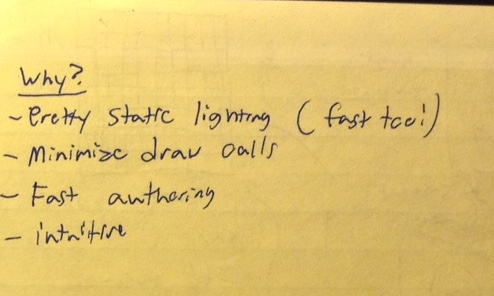 Why?
- Pretty static lighting (fast too!)
- Minimize draw calls
- Fast authoring
- intuitive